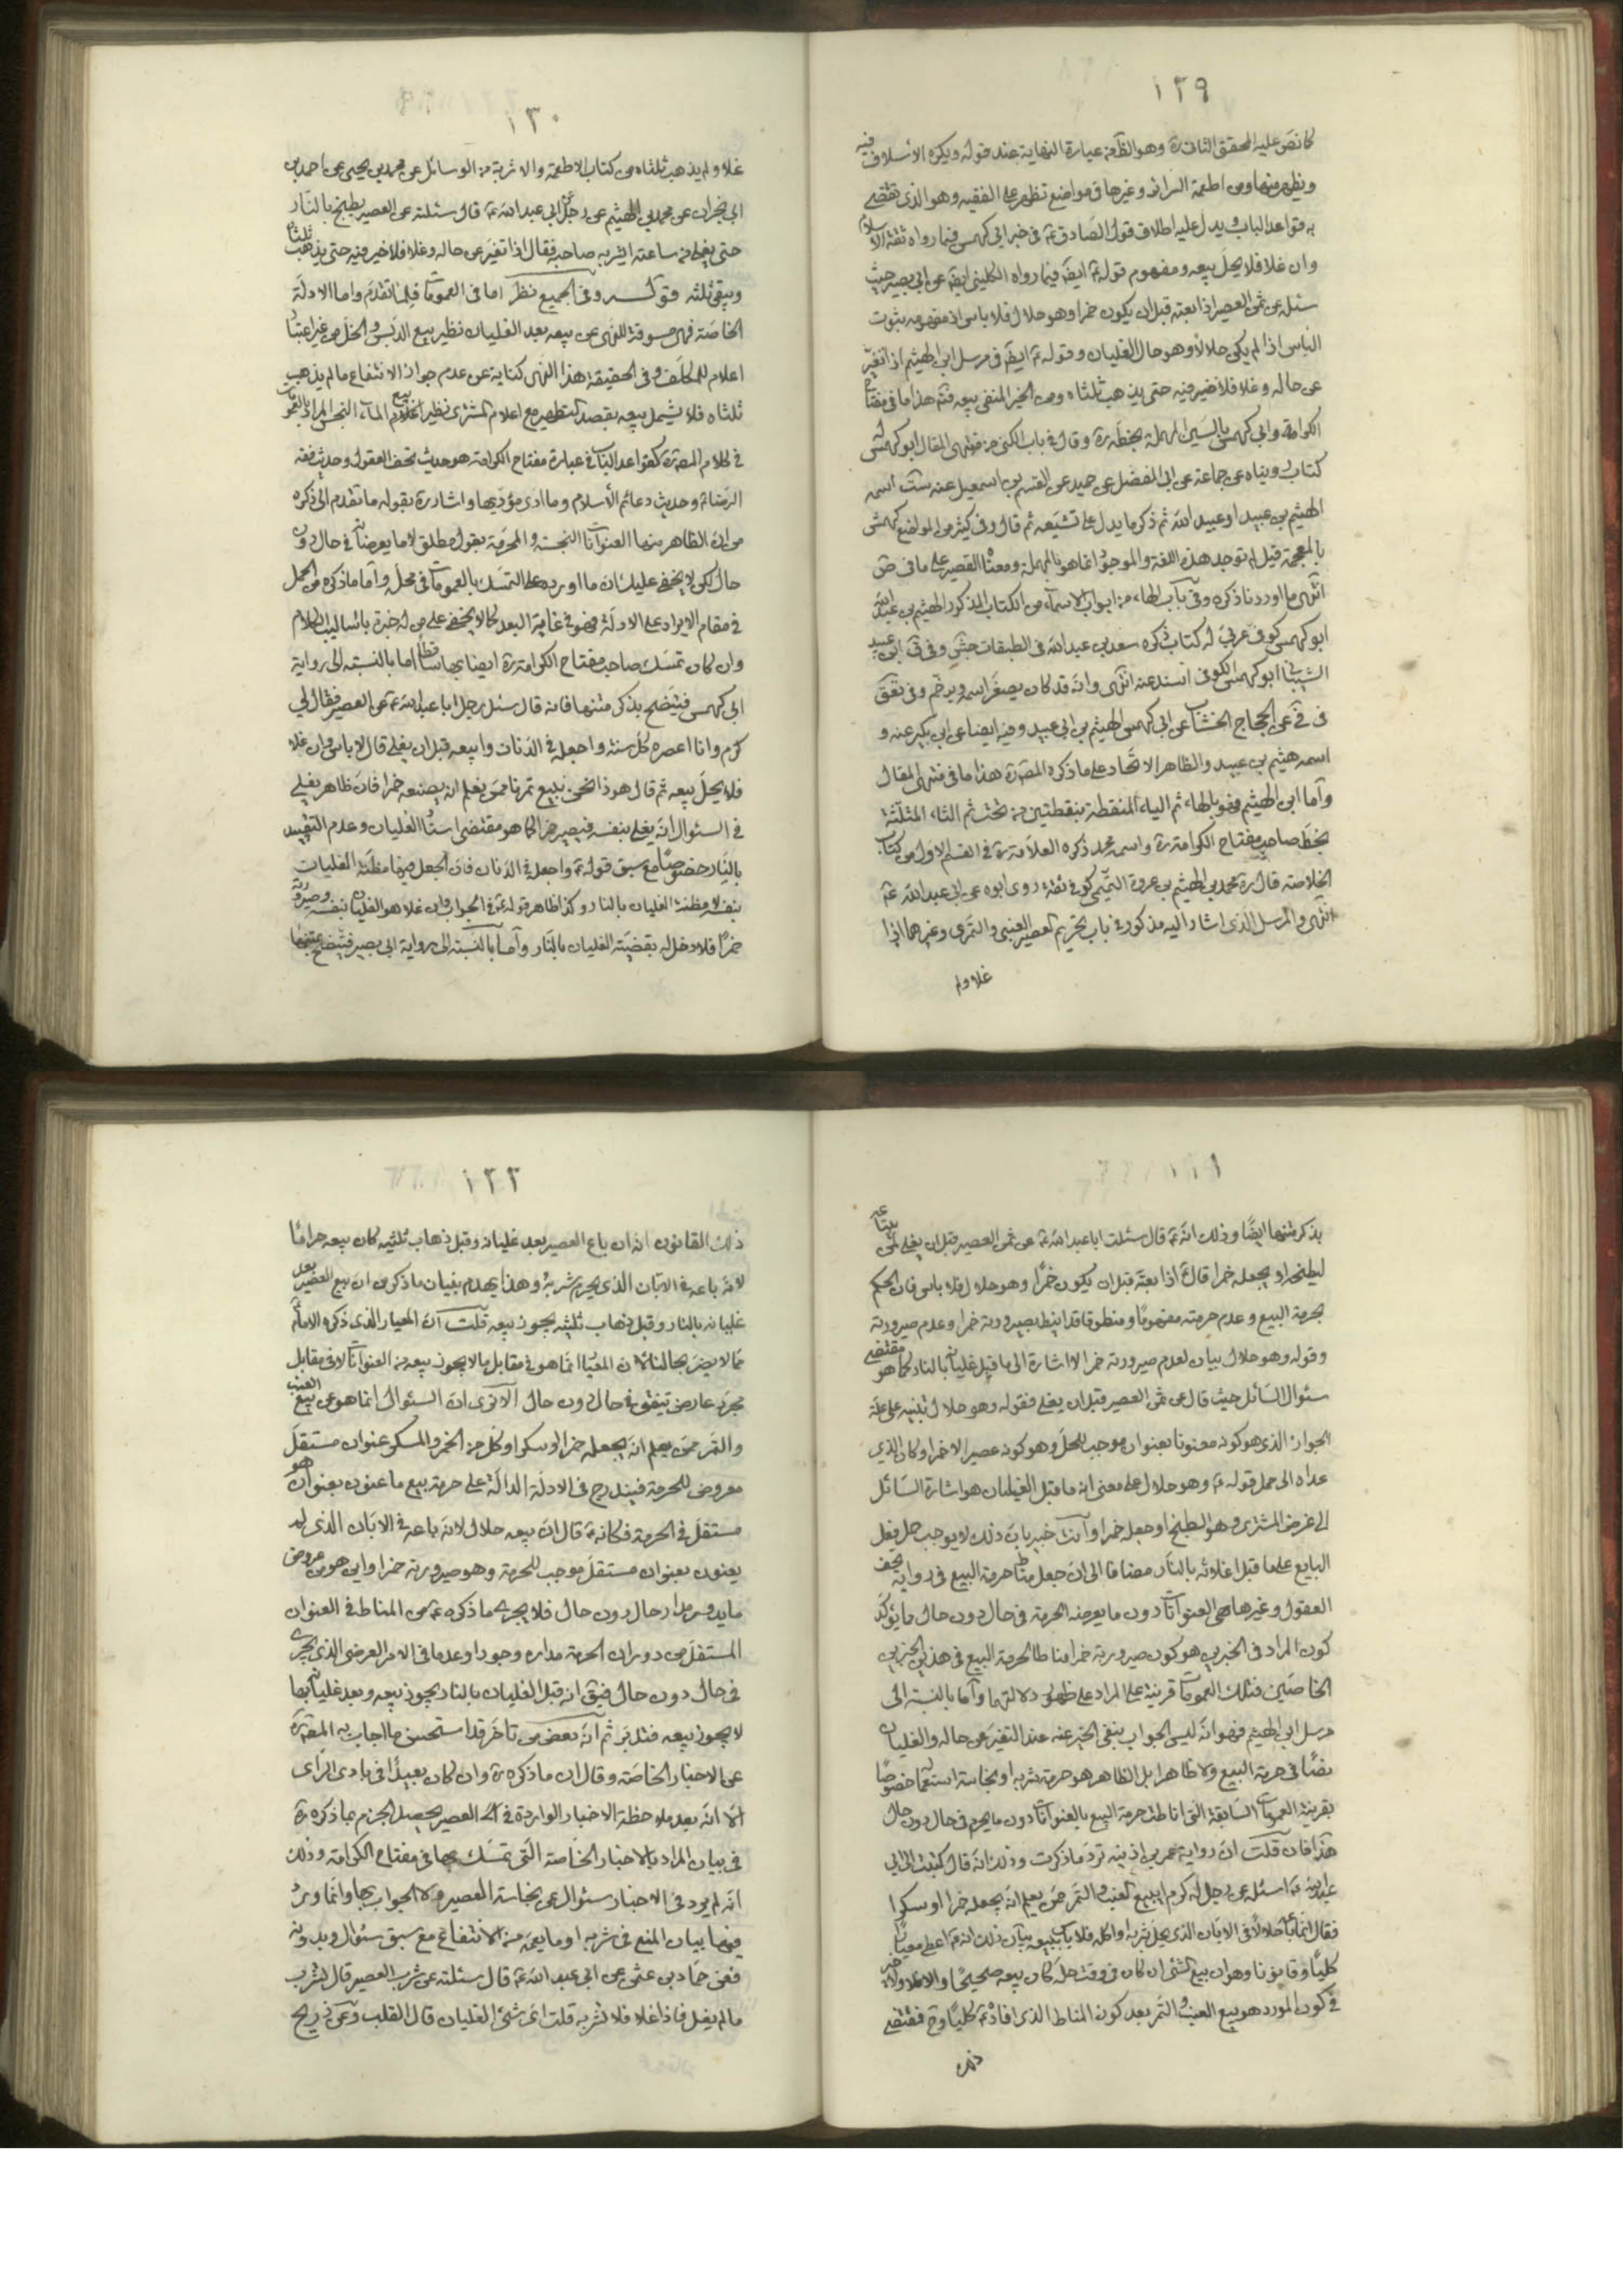 ١٢٩
كما نص عليه المحقق الثانی ره وهو الظ من عبارة النهاية عند قوله ويكره الاسلاف فيه
ويظهر منها ومن اطعمة السرائر وغيرها فی مواضع تظهر على الفقيه وهو الذی تقتضی
به قواعد الباب ويدل عليه اطلاق قول الصادق ع فی خبر ابی كهمس فيما رواه ثقة الاسلام
وان غلا فلا يحل بيعه ومفهوم قوله ع ايضا فيما رواه الكلينی ايضا عن ابی بصير حيث
سئله عن ثمن العصير اذا بعته قبل ان يكون خمرا وهو حلال فلا باس اذ مفهومه ثبوت
الباس اذا لم يكن حلالا وهو حال الغليان وقوله ع ايضا فی مرسل ابی الهيثم اذا تغير
عن حاله وغلا فلا خير فيه حتى يذهب ثلثاه ومن الخير المنفی بيعه فتم هذا ما فی مفتاح
الكرامة وابی كهمس بالسين المهملة بخطه ره وقال فی باب الكنى من منتهى المقال ابو كهمس له
كتاب رويناه عن جماعة عن ابی المفضل عن حميد عن القسم بن اسمعيل عنه ست اسمه
الهيثم بن عبيد او عبيد الله ثم ذكر ما يدل على تشيعه ثم قال وفی كثير من المواضع كهمش
بالمعجمة قيل لم توجد هذه اللغة والموجود انما هو بالمهملة ومعناه القصير على ما فی ض
انتهى ما اوردنا ذكره وفی باب الهاء من ابواب الاسماء من الكتاب المذكور الهيثم بن عبد الله
ابو كهمس كوفی عربی له كتاب ذكره سعد بن عبد الله فی الطبقات جش وفی ق ابن عبيد
الشيبانی ابو كهمس الكوفی اسند عنه انتهى وانه قد كان يصغر اسمه ويرخم وفی تعق
فی فی عن الحجاج الخشاب عن ابی كهمس الهيثم بن ابی عبيد وفيه ايضا عن ابن بكير عنه و
اسمه هيثم بن عبيد والظاهر الاتحاد على ما ذكره المص ره هذا ما فی منتهى المقال
واما ابی الهيثم فهو بالهاء ثم الياء المنقطة بنقطتين من تحت ثم الثاء المثلثة
بخط صاحب مفتاح الكرامة ره واسمه محمد ذكره العلامة ره فی القسم الاول من كتاب
الخلاصة قال ره محمد بن الهيثم بن عروة التميمی كوفی ثقة روى ابوه عن ابی عبد الله ع
انتهى والمرسل الذی اشار اليه مذكور فی باب تحريم العصير العنبی والتمری وغيرهما اذا
غلا ولم
١٣٠
غلا ولم يذهب ثلثاه من كتاب الاطعمة والاشربة من الوسائل عن محمد بن يحيى عن احمد بن
ابی نجران عن محمد بن الهيثم عن رجل عن ابی عبد الله ع قال سئلته عن العصير يطبخ بالنار
حتى يغلی من ساعته ايشربه صاحبه فقال اذا تغير عن حاله وغلا فلا خير فيه حتى يذهب ثلثاه
ويبقى ثلثه قوله وفی الجميع نظر اما فی العمومات فلما تقدم واما الادلة
الخاصة فهی مسوقة للنهی عن بيعه بعد الغليان نظير بيع الدبس والخل من غير اعتبار
اعلام المكلف وفی الحقيقة هذا النهی كناية عن عدم جواز الانتفاع ما لم يذهب
ثلثاه فلا يشمل بيعه بقصد التطهير مع اعلام المشتری نظير بيع الماء النجس المراد بالعمومات
فی كلام المص ره كقواعد الباب فی عبارة مفتاح الكرامة هو حديث تحف العقول وحديث فقه
الرضا ع وحديث دعائم الاسلام وما ادى مؤديها واشار ره بقوله ما تقدم الى ذكره
من ان الظاهر منها العنوانات النجسة والمحرمة بقول مطلق لا ما يعرضانه فی حال دون
حال لكن لا يخفى عليك ان ما اورده على التمسك بالعمومات فی محله واما ما ذكره من الحمل
فی مقام الايراد على الادلة فهو فی غاية البعد كما لا يخفى على من له خبرة باساليب الكلام
وان كان تمسك صاحب مفتاح الكرامة ره ايضا بها ساقطا اما بالنسبة الى رواية
ابی كهمس فيتضح بذكر متنها فانه قال سئل رجل ابا عبد الله ع عن العصير فقال لی
كرم وانا اعصره كل سنة واجعله فی الدنان وابيعه قبل ان يغلی قال لا باس وان غلا
فلا يحل بيعه ثم قال هو ذا نحن نبيع تمرنا ممن يعلم انه يصنعه خمرا فان ظاهر يغلی
فی السئوال انه يغلی بنفسه فيصير خمرا كما هو مقتضى اسناد الغليان وعدم التقييد
بالنار خصوصا مع سبق قوله ع واجعله فی الدنان فان الجعل فيها مظنة الغليان
بنفسه لا مظنة الغليان بالنار وكذا ظاهر قوله ع فی الجواب وان غلا هو الغليان بنفسه وصيرورته
خمرا فلا دخل له بقضية الغليان بالنار واما بالنسبة الى رواية ابی بصير فيتضح حقيقتها
١٣١
بذكر متنها ايضا وذلك انه ع قال سئلت ابا عبد الله ع عن ثمن العصير قبل ان يغلی لمن يبتاعه
ليطبخه او يجعله خمرا قال ع اذا بعته قبل ان يكون خمرا وهو حلال فلا باس فان الحكم
بحرمة البيع وعدم حرمته مفهوما ومنطوقا قد انيط بصيرورته خمرا وعدم صيرورته
وقوله وهو حلال بيان لعدم صيرورته خمرا لا اشارة الى ما قبل غليانه بالنار كما هو مقتضى
سئوال السائل حيث قال عن ثمن العصير قبل ان يغلی فقوله وهو حلال تنبيه على علة
الجواز الذی هو كونه معنونا بعنوان موجب للحل وهو كونه عصيرا لا خمرا وكان الذی
عداه الى حمل قوله ع وهو حلال على معنى انه ما قبل الغليان هو اشارة السائل
الى غرض المشتری وهو الطبخ او جعله خمرا وانت خبير بان ذلك لا يوجب حمل فعل
البايع على ما قبل اغلائه بالنار مضافا الى ان جعل مناط حرمة البيع فی رواية تحف
العقول وغيرها هی العنوانات دون ما يعرضه الحرمة فی حال دون حال ما يؤكد
كون المراد فی الخبرين هو كون صيرورته خمرا مناطا لحرمة البيع فی هذين الخبرين
الخاصين فتلك العمومات قرينة على المراد على ظهور دلالتهما واما بالنسبة الى
مرسل ابی الهيثم فهو انه ليس الجواب بنفی الخير عنه عند التغير عن حاله والغليان
نصا فی حرمة البيع ولا ظاهرا بل الظاهر هو حرمة شربه او نجاسة استعماله خصوصا
بقرينة العمومات السابقة التی اناطت حرمة البيع بالعنوانات دون ما يحرم فی حال دون حال
هذا فان قلت ان رواية عمر بن اذينه ترد ما ذكرت وذلك انه قال كتبت الى ابی
عبد الله ع اسئله عن رجل له كرم ايبيع العنب والتمر ممن يعلم انه يجعله خمرا او سكرا
فقال انما باعه حلالا فی الابان الذی يحل شربه او اكله فلا باس ببيعه بيان ذلك انه ع اعطى معيارا
كليا وقانونا وهو ان بيع الشیء ان كان فی وقت حله كان بيعه صحيحا والا فلا ولا ضير
فی كون المورد هو بيع العنب والتمر بعد كون المناط الذی افاده ع كليا وح فمقتضى
ذلك
١٣٢
ذلك القانون انه ان باع العصير بعد غليانه وقبل ذهاب ثلثيه كان بيعه حراما
لانه باعه فی الابان الذی يحرم شربه وهذا يهدم بنيان ما ذكر من ان بيع العصير بعد
غليانه بالنار وقبل ذهاب ثلثيه يجوز بيعه قلت ان المعيار الذی ذكره الامام ع
مما لا يضر بحالنا لان المعيار انما هو فی مقابل ما لا يجوز بيعه من العنوانات لا فی مقابل
مجرد عارض يتفق فی حال دون حال الا ترى ان السئوال انما هو عن بيع العنب
والتمر ممن يعلم انه يجعله خمرا او سكرا وكل من الخمر والمسكر عنوان مستقل
معروض للحرمة فيندرج فی الادلة الدالة على حرمة بيع ما عنون بعنوان هو
مستقل فی الحرمة فكانه ع قال ان بيعه حلال لانه باعه فی الابان الذی لم
يعنون بعنوان مستقل موجب للحرمة وهو صيرورته خمرا واين هو من عروض
ما يدور مدار حال دون حال فلا يجری ما ذكره ع من المناط فی العنوان
المستقل من دوران الحرمة مداره وجودا وعدما فی الامر العرضی الذی يجری
فی حال دون حال فيق انه قبل الغليان بالنار يجوز بيعه وبعد غليانه بها
لا يجوز بيعه فتدبر ثم انه بعض من تاخر قد استحسن ما اجاب به المص ره
عن الاخبار الخاصة وقال ان ما ذكره ره وان كان بعيدا فی بادی الرای
الا انه بعد ملاحظة الاخبار الواردة فی العصير يحصل الجزم بما ذكره ره
فی بيان المراد بالاخبار الخاصة التی تمسك بها فی مفتاح الكرامة وذلك
انه لم يرد فی الاخبار سئوال عن نجاسة العصير ولا الجواب بها وانما ورد
فيها بيان المنع فی شربه او ما يعمه من الانتفاع مع سبق سئوال وبدونه
فعن حماد بن عثمن عن ابی عبد الله ع قال سئلته عن شرب العصير قال تشرب
ما لم يغل فاذا غلا فلا تشربه قلت ای شیء الغليان قال القلب وعن ذريح